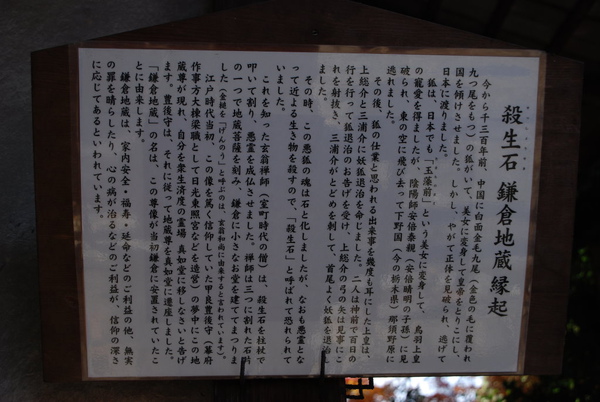 殺生石 鎌倉地蔵縁起
今から千三百年前、中国に白面金毛九尾（金色の毛に覆われ
九つ尾をもつ）の狐がいて、美女に変身して皇帝をとりこにし、
国を傾けさせました。しかし、やがて正体を見破られ、逃げて
日本に渡りました。
狐は、日本でも「玉藻前」という美女に変身して、鳥羽上皇
の寵愛を得ましたが、陰陽師安倍泰親（安倍晴明の子孫）に見
破られ、東の空に飛び去って下野国（今の栃木県）那須野原に
逃れました。
その後、狐の仕業と思われる出来事を幾度も耳にした上皇は、
上総介と三浦介に妖狐退治を命じました。二人は神前で百日の
行を行って狐退治のお告げを受け、上総介の弓の矢は見事にこ
れを射抜き、三浦介がとどめを刺して、首尾よく妖狐を退治し
ました。
その時、この悪狐の魂は石と化しましたが、なおも悪霊とな
って近よる生き物を殺すので、「殺生石」と呼ばれて恐れられて
いました。
これを知った玄翁禅師（室町時代の僧）は、殺生石を拄杖で
叩いて割り、悪霊を成仏させました。禅師は三つに割れた石
の一つで地蔵菩薩を刻み、鎌倉に小さなお堂を建ててまつりま
した（金鎚を「げんのう」と呼ぶのは、玄翁和尚に由来すると言われています）。
江戸時代当初、この像を篤く信仰していた甲良豊後守（幕府
作事方大棟梁職として日光東照宮などを造営）の夢中にこの地
蔵尊が現れ、自分を衆生済度の霊場 真如堂に移しなさいと告げ
ます。豊後守は、それに従って地蔵尊を真如堂に遷座しました。
「鎌倉地蔵」の名は、この尊像が当初鎌倉に安置されていたこ
とに由来します。
鎌倉地蔵は、家内安全・福寿・延命などのご利益の他、無実
の罪を晴らしたり、心の病が治るなどのご利益が、信仰の深さ
に応じてあるといわれています。